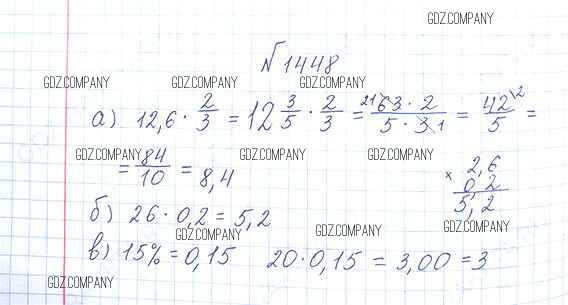 GDZ.COMPANY
№ 1448
GDZ.COMPANY GDZ.COMPANY GDZ.COMPANY
а) 12,6 · 2/3 = 12 3/5 · 2/3 = 21 63 · 2 / 5 · 3 1 = 42 \2 / 5 =
= 84/10 = 8,4
GDZ.COMPANY GDZ.COMPANY GDZ.COMPANY
× 2,6
0,2
5,2
б) 26 · 0,2 = 5,2
GDZ.COMPANY GDZ.COMPANY GDZ.COMPANY
в) 15% = 0,15 20 · 0,15 = 3,00 = 3
GDZ.COMPANY